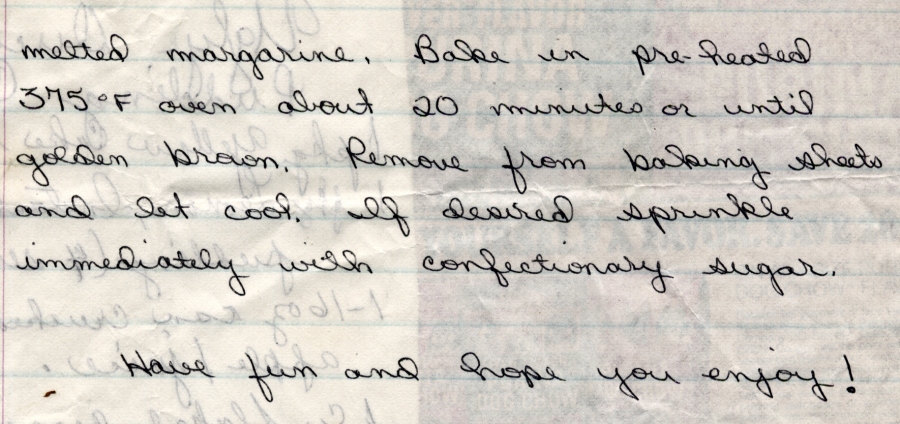 melted margarine. Bake in pre-heated
375°F oven about 20 minutes or until
golden brown. Remove from baking sheets
and let cool. If desired sprinkle
immediately with confectionary sugar.
Have fun and hope you enjoy!